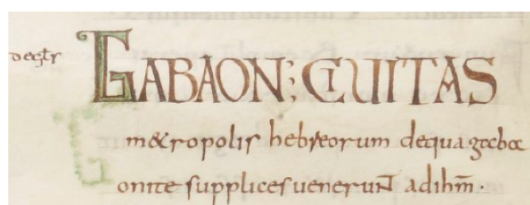 GABAON; CIUITAS
m&ropolis hebreorum dequa gabaonite supplices uenerunt adihm̅.